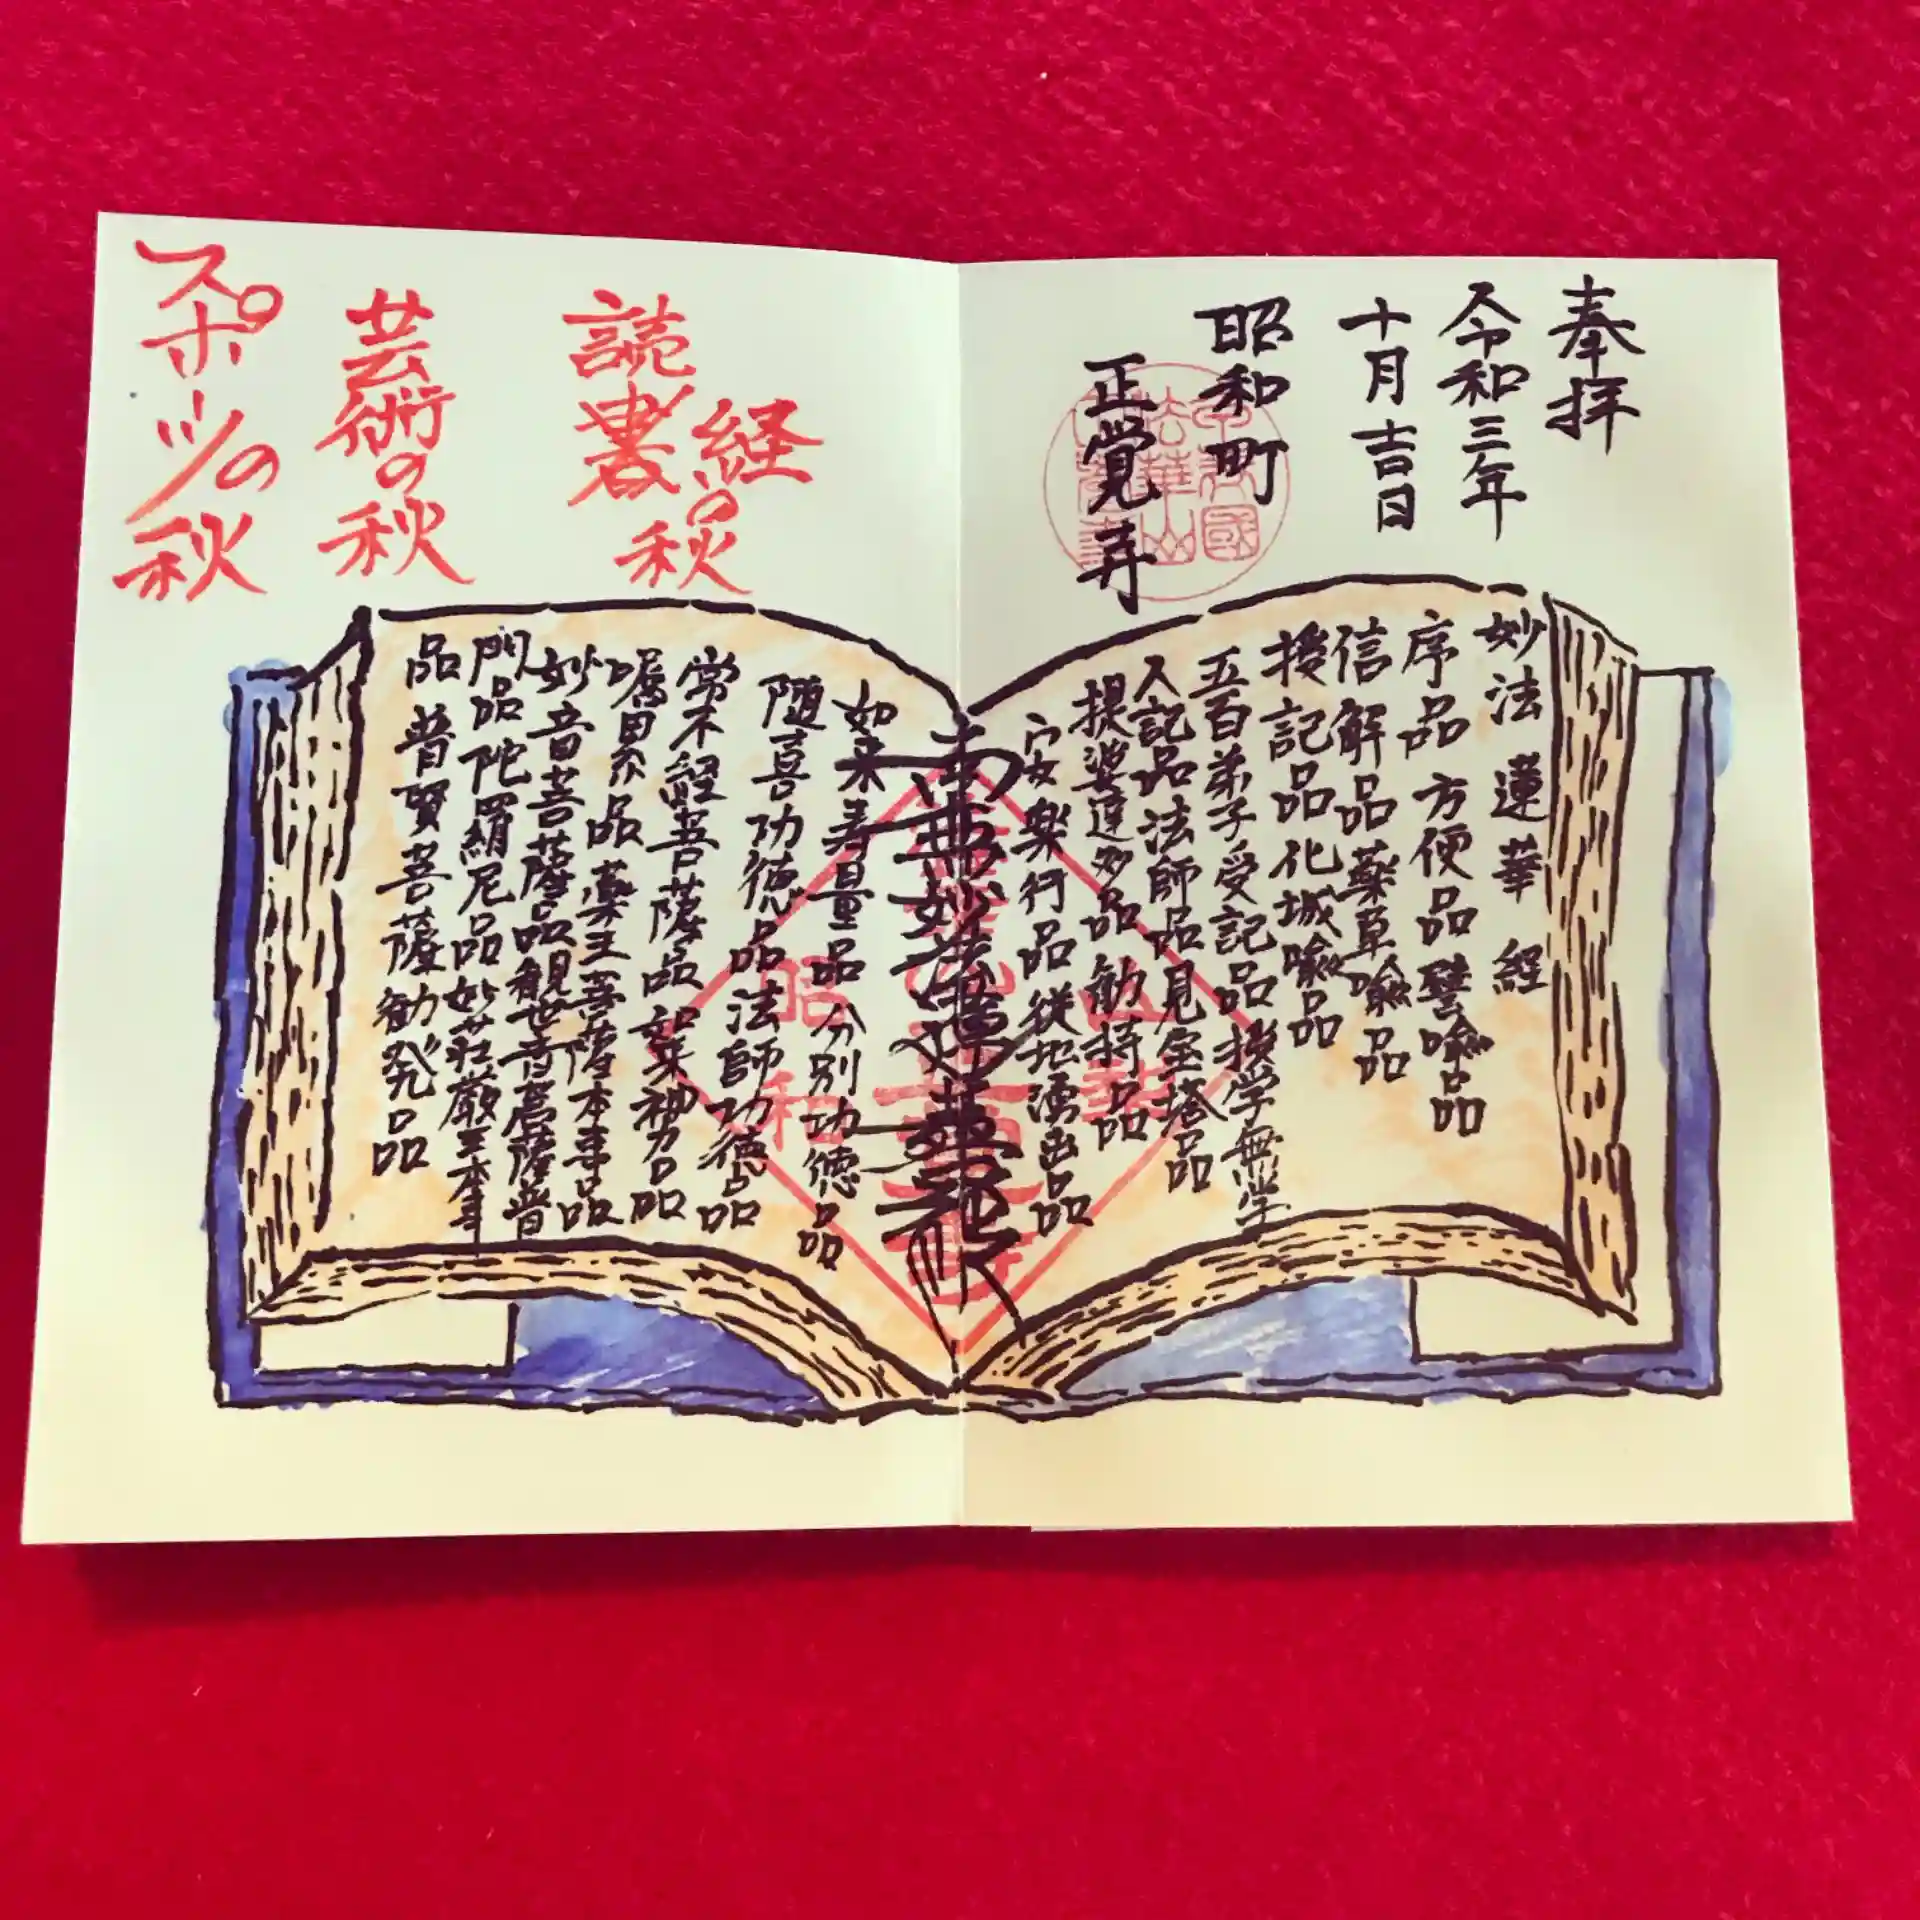 奉拝
令和三年
十月吉日
昭和町
正覚寺
妙法蓮華経
序品 方便品 譬喩品
信解品 薬草喩品
授記品 化城喩品
五百弟子受記品 授学無学
人記品 法師品 見宝塔品
提婆達多品 勧持品
安楽行品 従地湧出品
南無妙法蓮華経
如来寿量品 分別功徳品
随喜功徳品 法師功徳品
常不軽菩薩品 如来神力品
嘱累品 薬王菩薩本事品
妙音菩薩品 観世音菩薩普
門品 陀羅尼品 妙荘厳王本事
品 普賢菩薩勧発品
読書の秋
経
芸術の秋
スポーツの秋
昭和